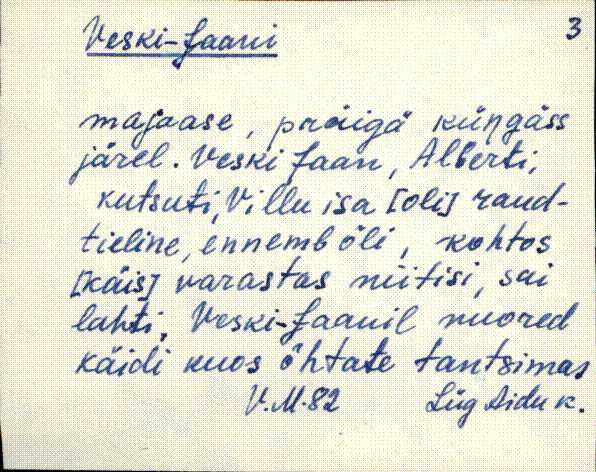 Veski-Jaani
3
majaase, präigä küŋgäss
järel. Veski Jaan, Alberti,
kutsuti, Villu isa [oli] raud-
tieline, ennemb õli, kohtos
[käis] varastas niitisi, sai
lahti, Veski-Jaanil nuored
käidi kuos õhtate tantsimas
V.M.82 Lüg Aidu k.